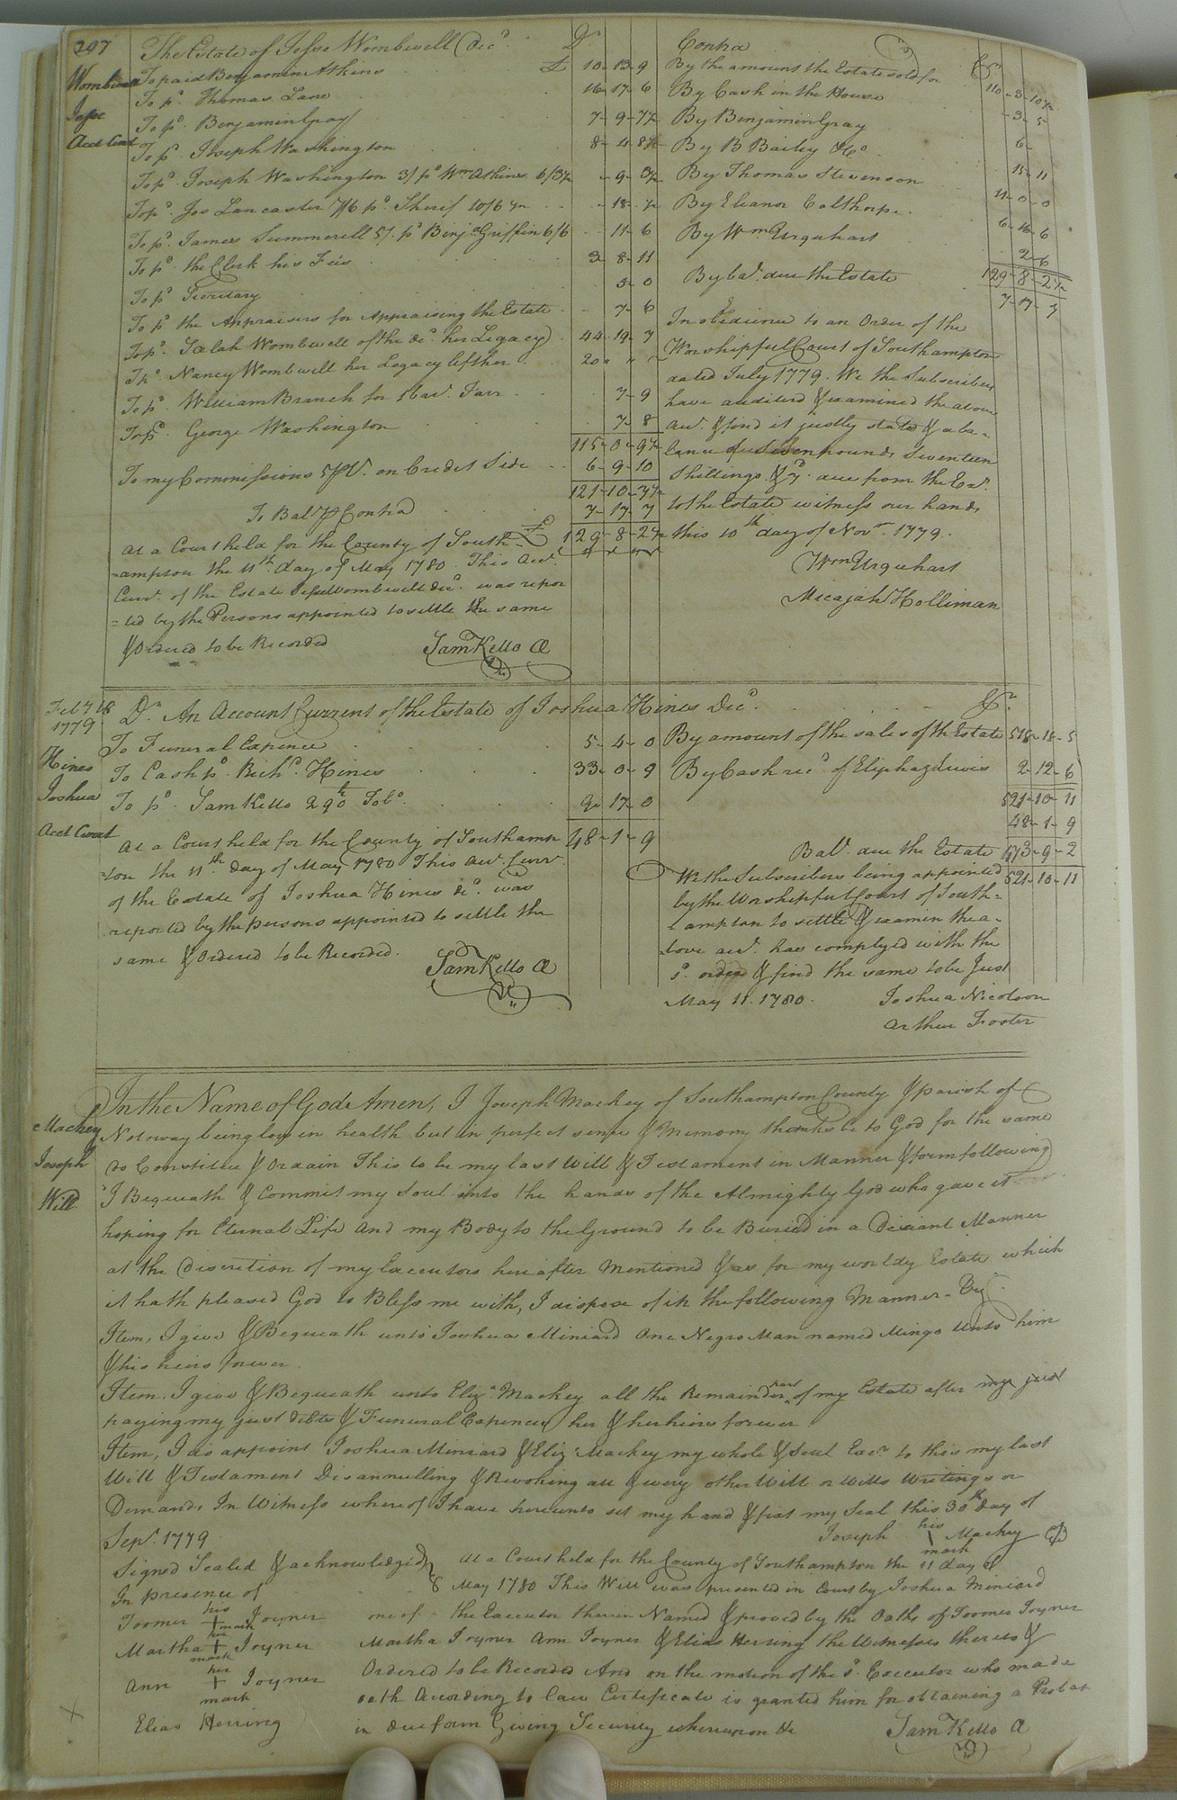 297
The Estate of Jesse Wombwell Decd. Dr.
Wombwell
Jesse
Acct Curt
To paid Benjamin Atkins £ 10-13-9
To pd. Thomas Lane 16-17-6
To pd. Benjamin Gray 7-9-7½
To pd. Joseph Washington 8-4-8½
To pd. Joseph Washington 3/ pd. Wm Atkins 6/3½ -9-3½
To pd. Jos Lancaster 7/6 pd. Sherif 10/6½ -18-½
To pd. James Summerell 5/. pd. Benja. Griffin 6/6 11-6
To pd. the Clerk his Fees 3-8-11
To pd. Secretary 3 0
To pd the Appraisers for Appraising the Estate 7-6
To pd. Selah Wombwell of the decd. her Legacy 44-19-7
To Nancy Wombwell her Legacy left her 20 " "
To pd. William Branch for 1 Barl. Tarr 7-9
To pd. George Washington 7 8
115-0-9½
To my Commissions 5 pCt. on Credit Side 6-9-10
121-10-7½
To Bale. pr Contra 7-17-7
£ 129-8-2½
At a Court held for the County of South=
=ampton the 11th day of May 1780. This Acct.
Curt. of the Estate Jesse Wombwell decd. was repor
=ted by the Persons appointed to settle the same
& Ordered to be Recorded
Sam Kello Cl
Contra Cr.
By the amount the Estate sold for 110-3-10½
By Cash in the House -3-5
By Benjamin Gray 6-
By B Bailey & Co 15-11
By Thomas Stevenson 11-0-0
By Eleanor Calthorpe 6-16-6
By Wm Urquhart 2-6
129-8-2½
By bal. due the Estate 7-17-7
In obedience to an Order of the
Worshipful Court of Southampton
dated July 1779. We the Subscribers
have audited & examined the above
acct. & find it justly stated & a ba-
lance of Seven pounds Seventeen
Shillings & 7d. due from the Exr.
to the Estate witness our hands
this 10th day of Novr. 1779.
Wm Urquhart
Micajah Holliman
Feby 18
1779
Hines
Joshua
Acct Curat
Dr. An Account Current of the Estate of Joshua Hines Decd. Cr.
To Funeral Expence 5-4-0
To Cash pd. Richd. Hines 33-0-9
To pd. Sam Kello 290 lb Tobo. 9-17-0
48-1-9
At a Court held for the County of Southamp
=ton the 11th day of May 1780 This acct. Curr.
of the Estate of Joshua Hines decd. was
reported by the persons appointed to settle the
same & Ordered to be Recorded.
Sam Kello Cl
By amount of the sales of the Estate 518-18-5
By Cash recd of Eliphaz Lewis 2-12-6
521-10-11
48-1-9
Bal. due the Estate 473-9-2
521-10-11
We the Subscribers being appointed
by the Worshipful Court of South=
=ampton to settle & examin the a-
bove acct. has complyed with the
sd. order & find the same to be Just
May 11. 1780.
Joshua Nicolson
Arthur Foster
Mackey
Joseph
Will
In the Name of God Amen, I Joseph Mackey of Southampton County & parish of
Notoway being low in health but in perfect sence & Memory thanks be to God for the same
do Constitue & Ordain This to be my last Will & Testament in Manner & form following
I Bequeath & Commit my Soul into the hands of the Almighty God who gave it
hoping for Eternal Life and my Body to the Ground to be Buried in a Desiant Manner
at the Discretion of my Executors hereafter Mentioned & as for my worldy Estate which
it hath pleased God to Bless me with, I dispose of in the following Manner - Viz
Item, I give & Bequeath unto Joshua Miniard One Negro Man named Mingo unto him
& his heirs forever.
Item. I give & Bequeath unto Eliza. Mackey all the Remainder part of my Estate after my just
paying my just debts & Funeral Expences her & her heirs forever
Item, I do appoint Joshua Miniard & Eliz: Mackey my whole & Soul Exrs. to this my last
Will & Testament Disannulling & Revoking all & every other Will or Wills Writings or
Demands In Witness whereof I have hereunto set my hand & fixt my Seal this 30th day of
Sepr. 1779
Joseph his mark Mackey
Signed Sealed & acknowledged
In presence of
Toomer his + mark Joyner
Martha her + mark Joyner
Ann her + mark Joyner
Elias Herring
At a Court held for the County of Southampton the 11 day of
May 1780 This Will was presented in Court by Joshua Miniard
one of the Executor therein Named & proved by the Oaths of Toomer Joyner
Martha Joyner Ann Joyner & Elias Herring the Witnesses thereto &
Ordered to be Recorded And on the motion of the sd. Executor who made
oath According to law Certificate is granted him for obtaining a Probat
in due form Giving Security whereupon &c
Sam Kello Cl